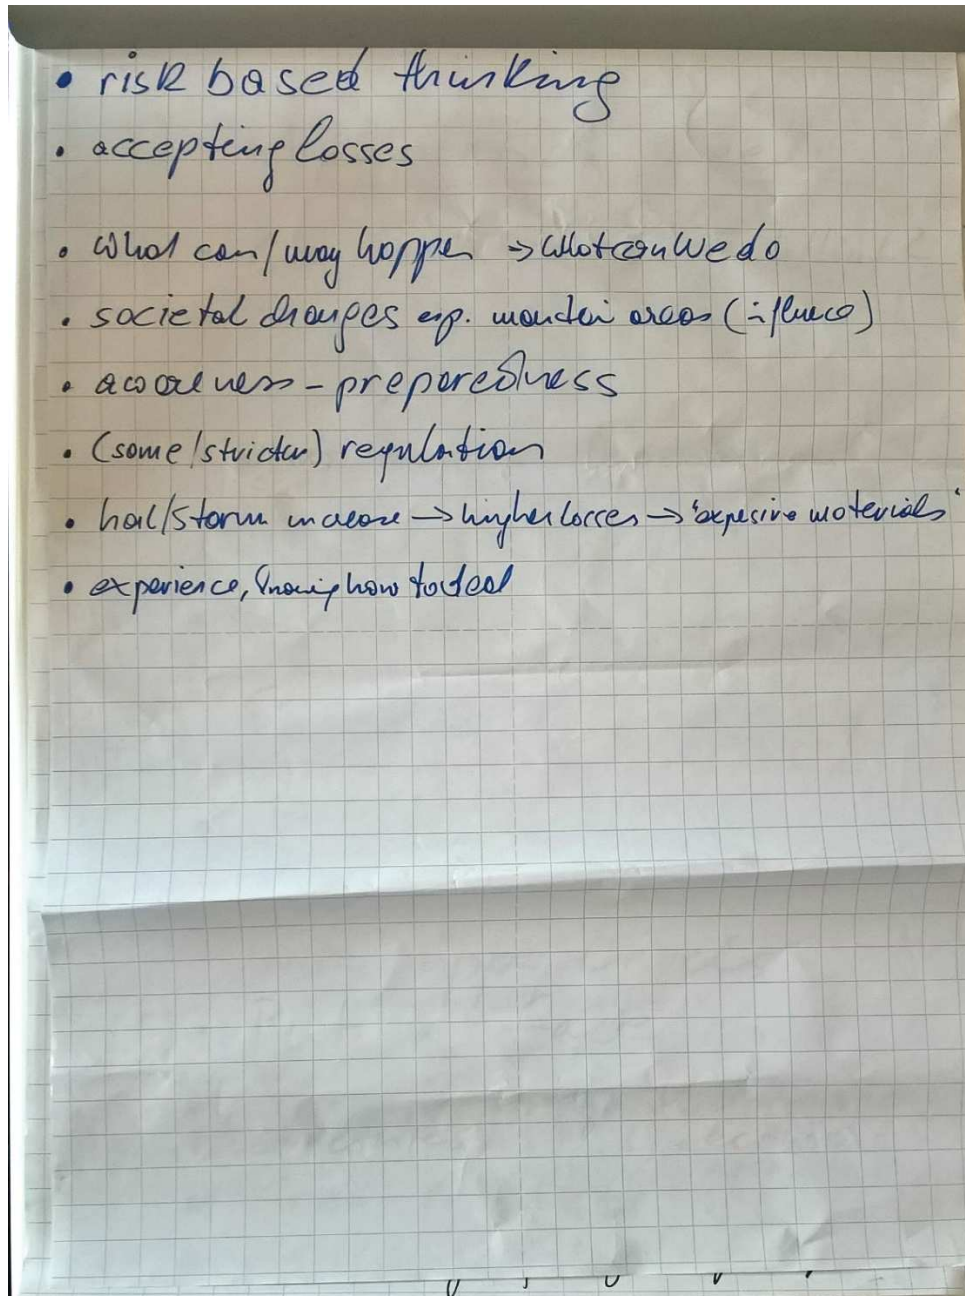 • risk based thinking
• accepting losses
• What can/may happen → What can we do
• societal changes esp. mountain areas (influence)
• awareness - preparedness
• (some/stricter) regulation
• hail/storm increase → higher losses → 'expensive materials'
• experience, knowing how to deal